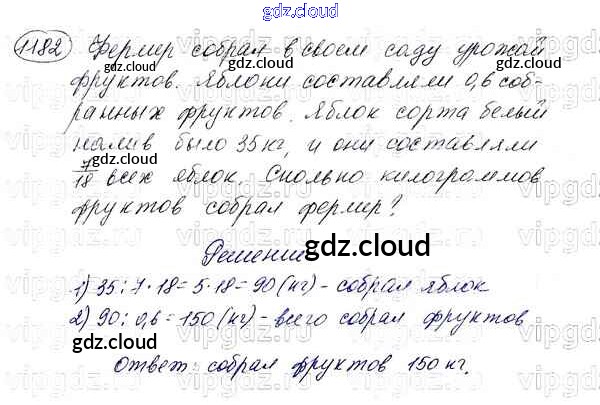 gdz.cloud
1182 Фермер собрал в своем саду урожай
фруктов. Яблони составляли 0,6 соб-
ранных фруктов. Яблок сорта белый
налив было 35 кг, и они составляли
7/18 всех яблок. Сколько килограммов
фруктов собрал фермер?
Решение
1) 35:7·18=5·18=90(кг)-собрал яблок
2) 90:0,6=150(кг)-всего собрал фруктов
Ответ: собрал фруктов 150 кг.
gdz.cloud
gdz.cloud
gdz.cloud
gdz.cloud
gdz.cloud
gdz.cloud
gdz.cloud
gdz.cloud
gdz.cloud